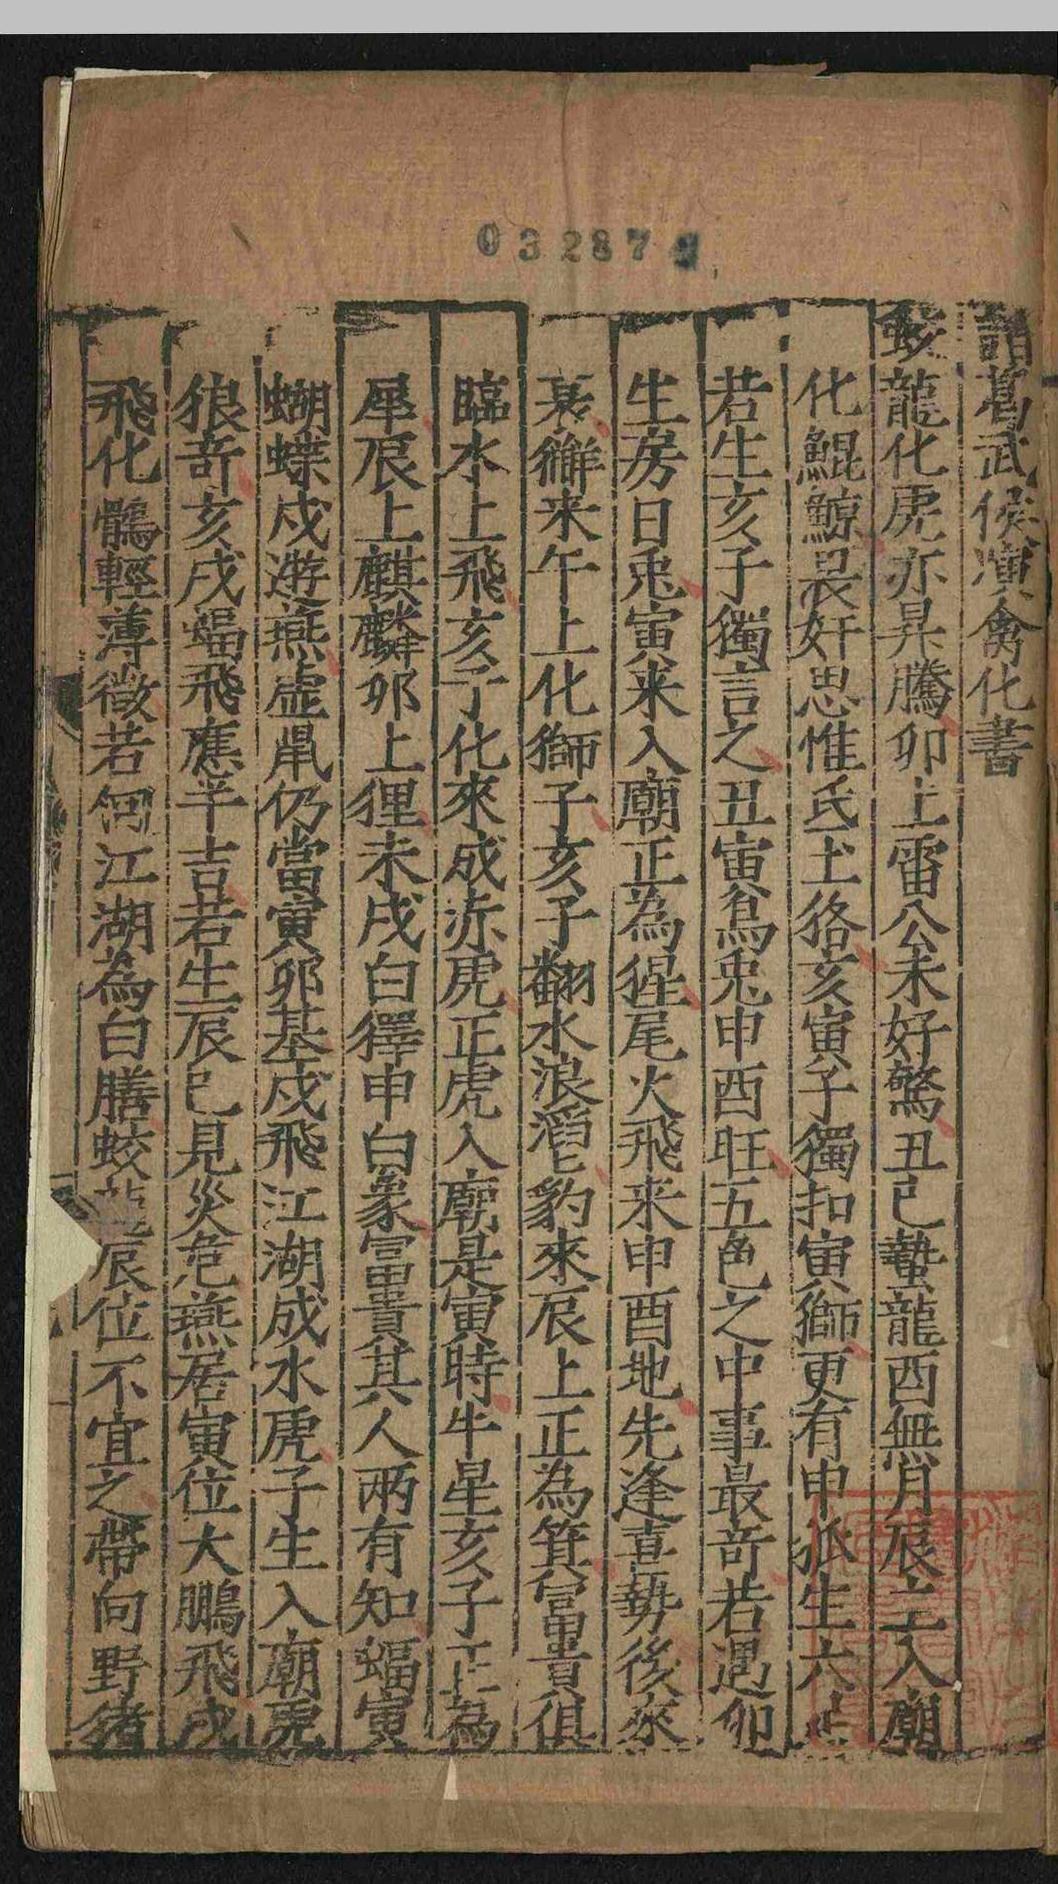 032874
諸葛武侯演禽化書
蛟龍化虎亦昇騰卯上雷公未好驚丑巳蟄龍酉無月辰上入廟
化鯤鯨畏奸思惟氐土狢亥寅子獨扣寅獅更有申狐生六
若生亥子獨言之丑寅為兎申酉旺五色之中事最奇若遇卯
生房日兎寅来入廟正為猩尾火飛来申酉地先逢喜勢後來
衰獬来午上化獅子亥子翻水浪滔匕豹來辰上正為箕冨貴俱
臨水上飛亥子化來成赤虎正虎入廟是寅時牛星亥子正為
犀辰上麒麟夘上狸未戌白獬申白象冨貴其人兩有知蝠寅
蝴蝶戌遊燕虛鼠仍當寅夘基戌飛江湖成水虎子生入廟
狼竒亥戌蝠飛應羊吉若生辰巳見災危燕居寅位大鵬飛戌
飛化鶻輕薄徵若何江湖為白膳蛟龍辰位不宜之帶向野猪